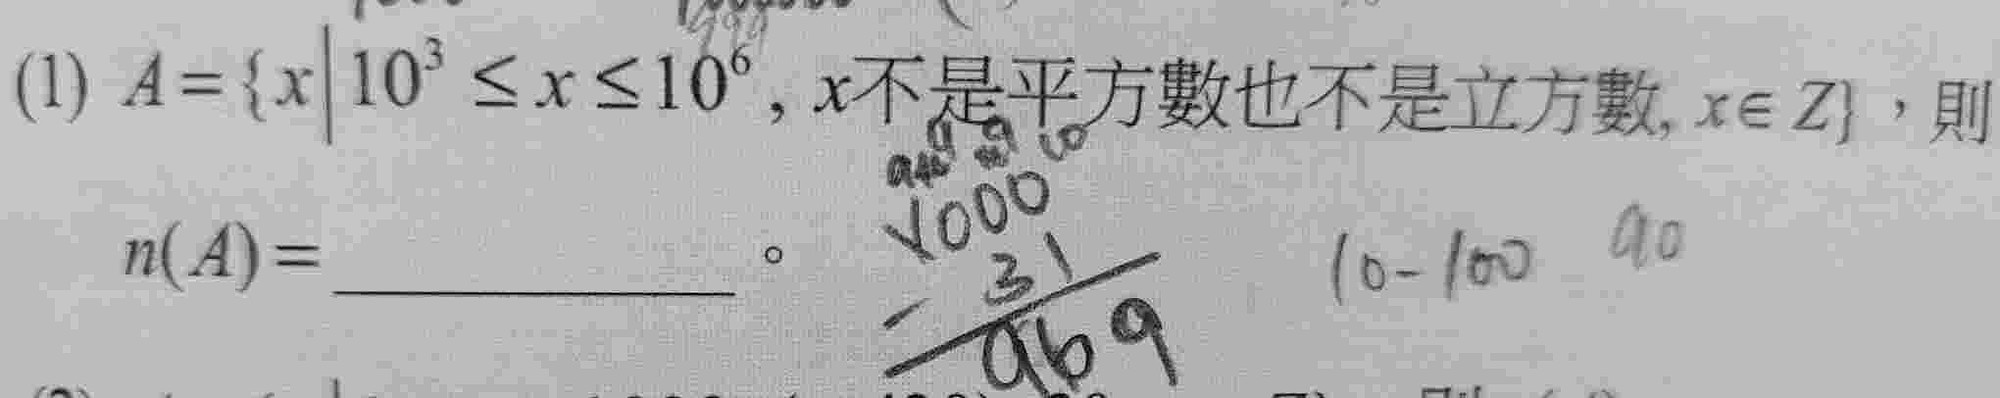 (1) A={x|10³ ≤ x ≤ 10⁶, x不是平方數也不是立方數, x∈Z}，則
n(A)=＿＿＿＿＿＿。
1000
- 31
969
10-100 90